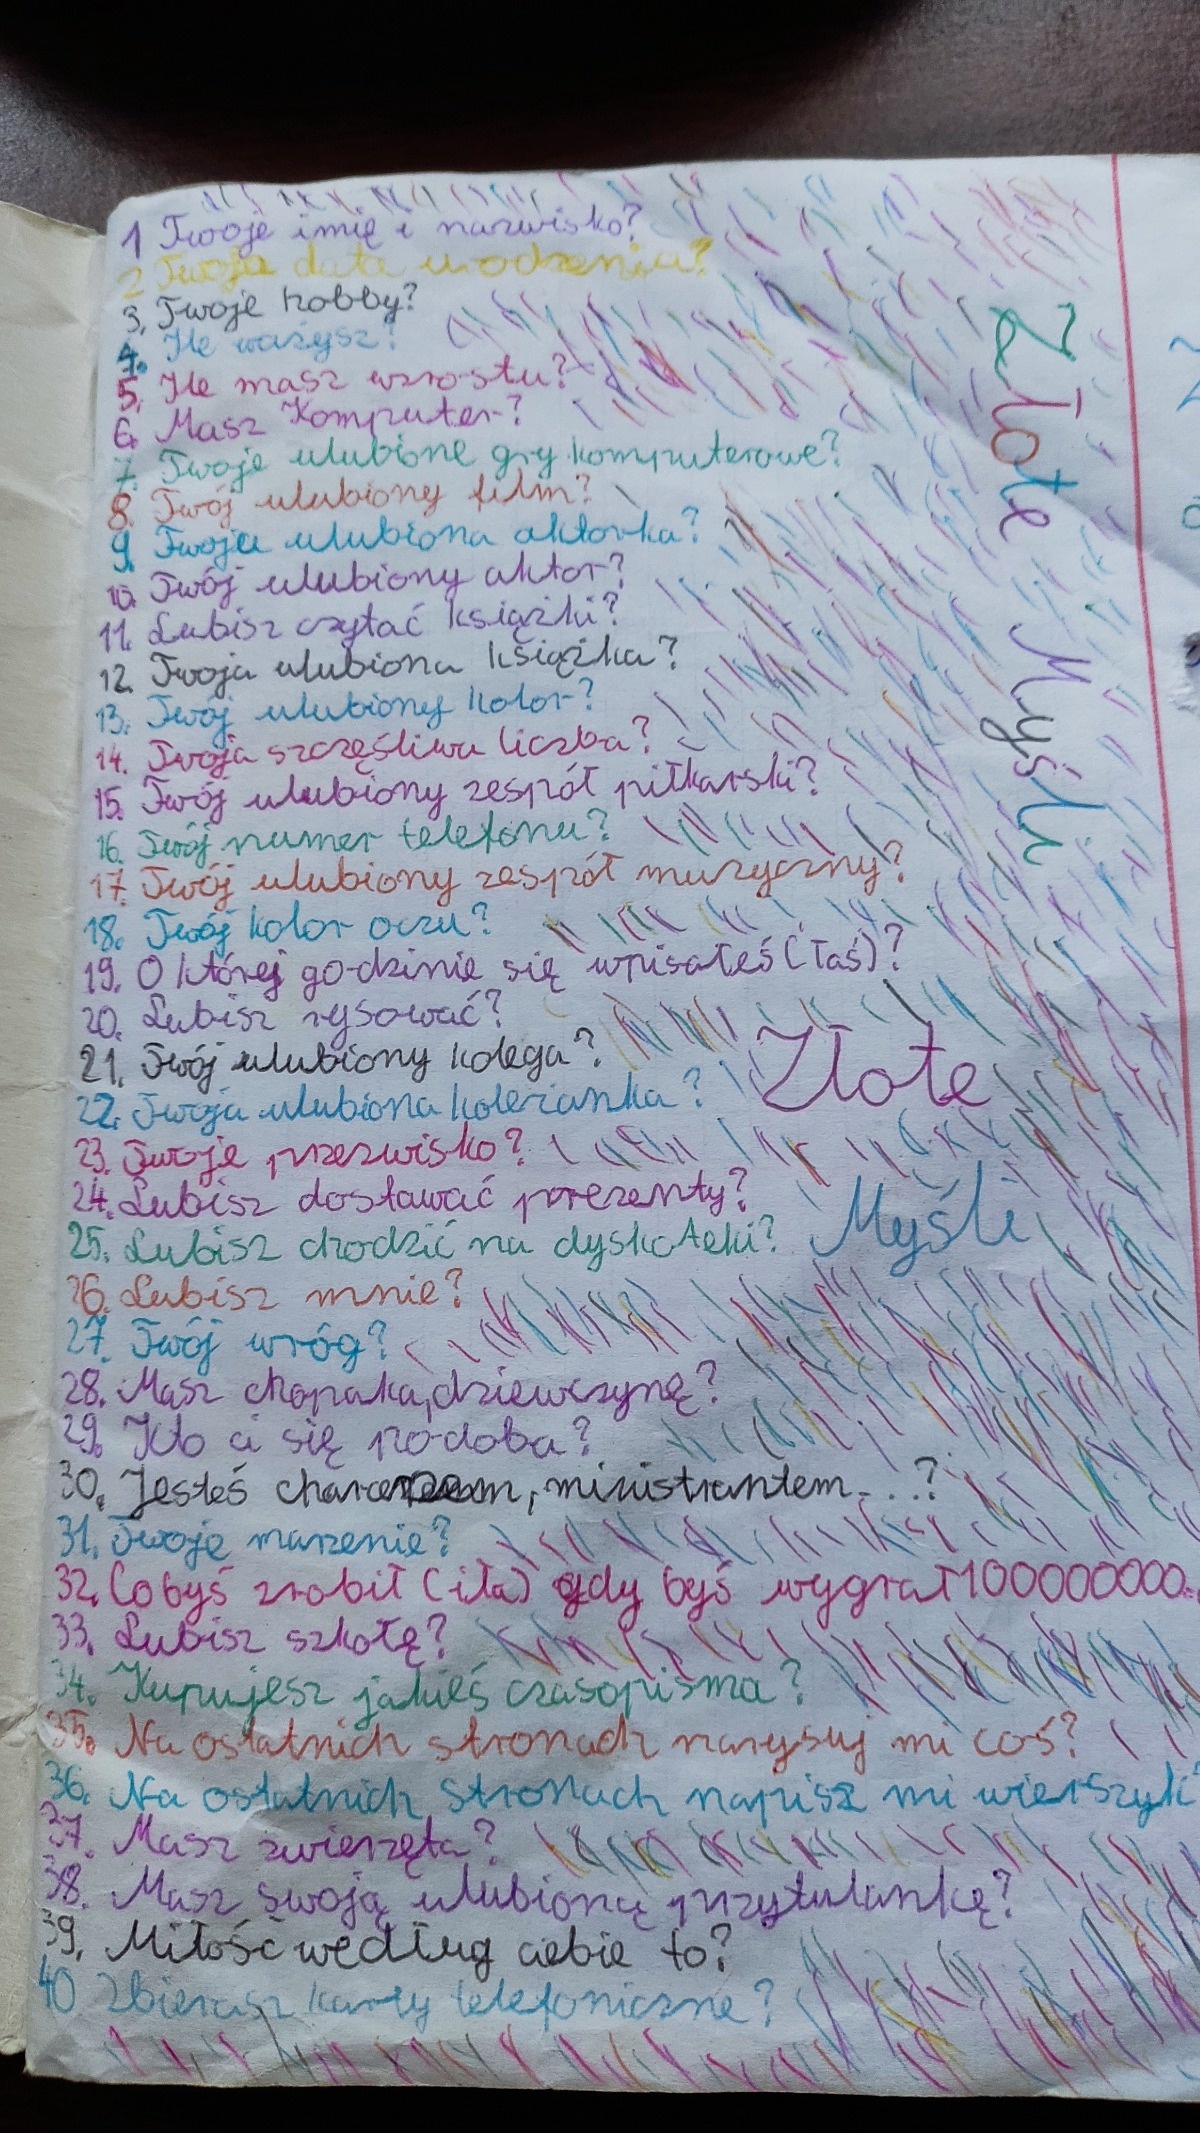 1 Twoje imię i nazwisko?
2 Twoja data urodzenia?
3. Twoje hobby?
4. Ile ważysz?
5. Ile masz wzrostu?
6. Masz Komputer?
7. Twoje ulubione gry komputerowe?
8. Twój ulubiony film?
9. Twoja ulubiona aktorka?
10. Twój ulubiony aktor?
11. Lubisz czytać książki?
12. Twoja ulubiona książka?
13. Twój ulubiony kolor?
14. Twoja szczęśliwa liczba?
15. Twój ulubiony zespół piłkarski?
16. Twój numer telefonu?
17. Twój ulubiony zespół muzyczny?
18. Twój kolor oczu?
19. O której godzinie się wpisałeś (łaś)?
20. Lubisz rysować?
21. Twój ulubiony kolega?
22. Twoja ulubiona koleżanka?
23. Twoje przezwisko?
24. Lubisz dostawać prezenty?
25. Lubisz chodzić na dyskoteki?
26. Lubisz mnie?
27. Twój wróg?
28. Masz chopaka, dziewczynę?
29. Kto ci się podoba?
30. Jesteś , ministrantem...?
31. Twoje marzenie?
32. Cobyś zrobił (iła) gdy byś wygrał 100000000.
33. Lubisz szkołę?
34. Kupujesz jakieś czasopisma?
35. Na ostatnich stronach narysuj mi coś?
36. Na ostatnich stronach napisz mi wierszyk?
37. Masz zwierzęta?
38. Masz swoją ulubioną przytulankę?
39. Miłość według ciebie to?
40 Zbierasz karty telefoniczne?
Złote Myśli
Złote
Myśli